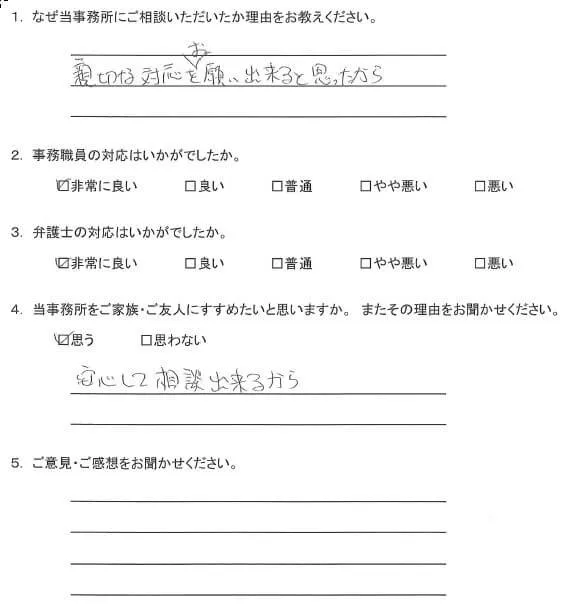 1. なぜ当事務所にご相談いただいたか理由をお教えください。
親切な対応をお願い出来ると思ったから
2. 事務職員の対応はいかがでしたか。
☑非常に良い □良い □普通 □やや悪い □悪い
3. 弁護士の対応はいかがでしたか。
☑非常に良い □良い □普通 □やや悪い □悪い
4. 当事務所をご家族・ご友人にすすめたいと思いますか。 またその理由をお聞かせください。
☑思う □思わない
安心して相談出来るから
5. ご意見・ご感想をお聞かせください。